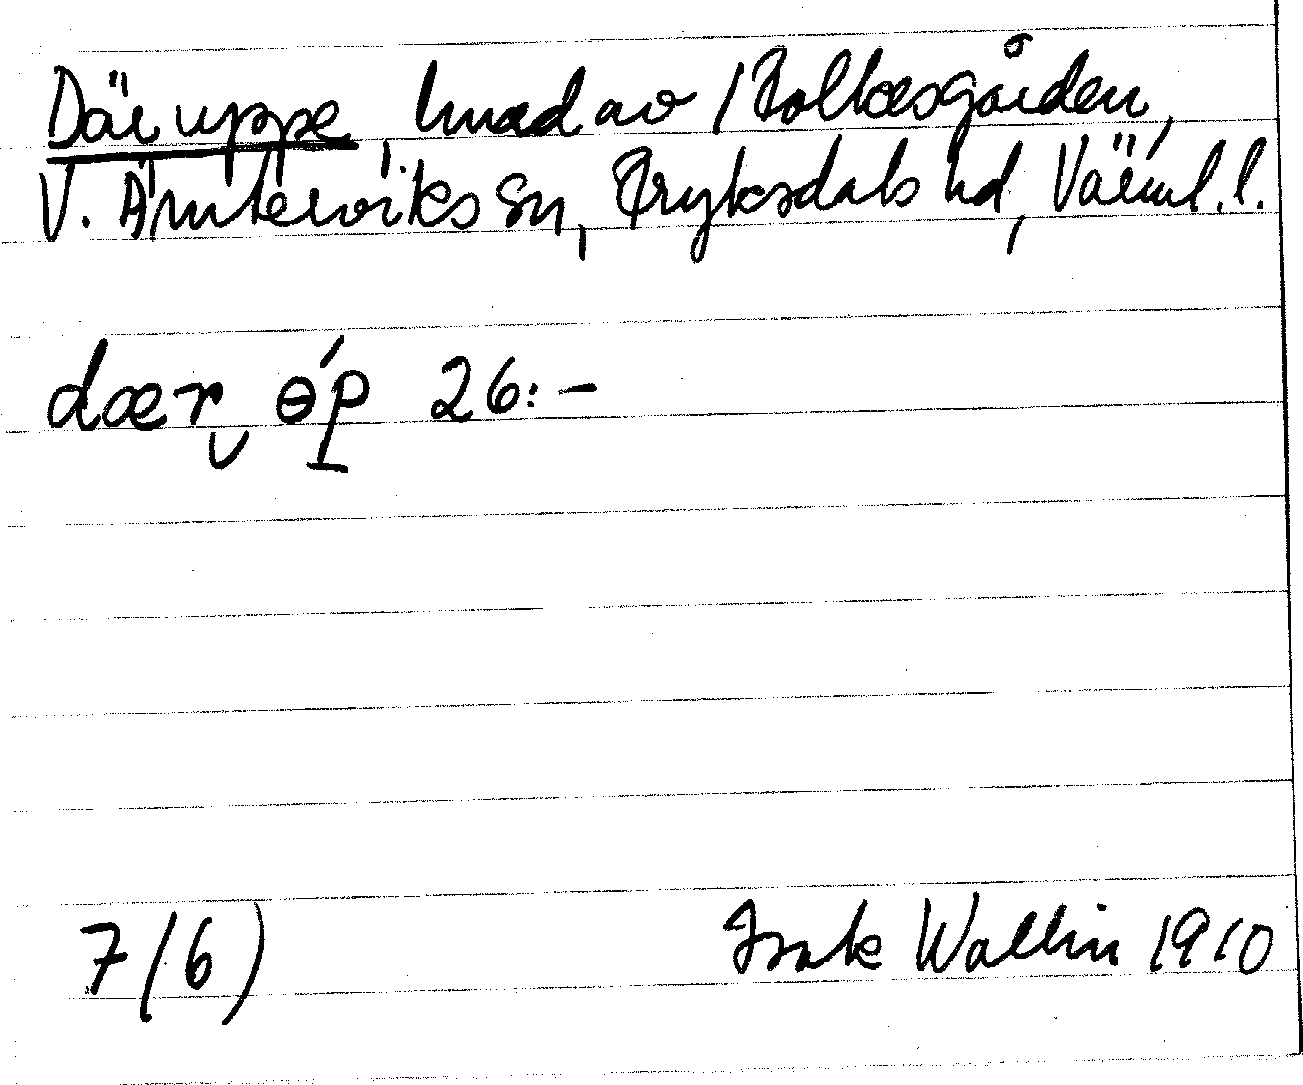 Däruppe, hmd av 1 Bolkesgården,
V. Ämterviks sn, Fryksdals hd, Värml. l.
dær ɵ́p 26:-
7(6)
Isak Wallin 1910